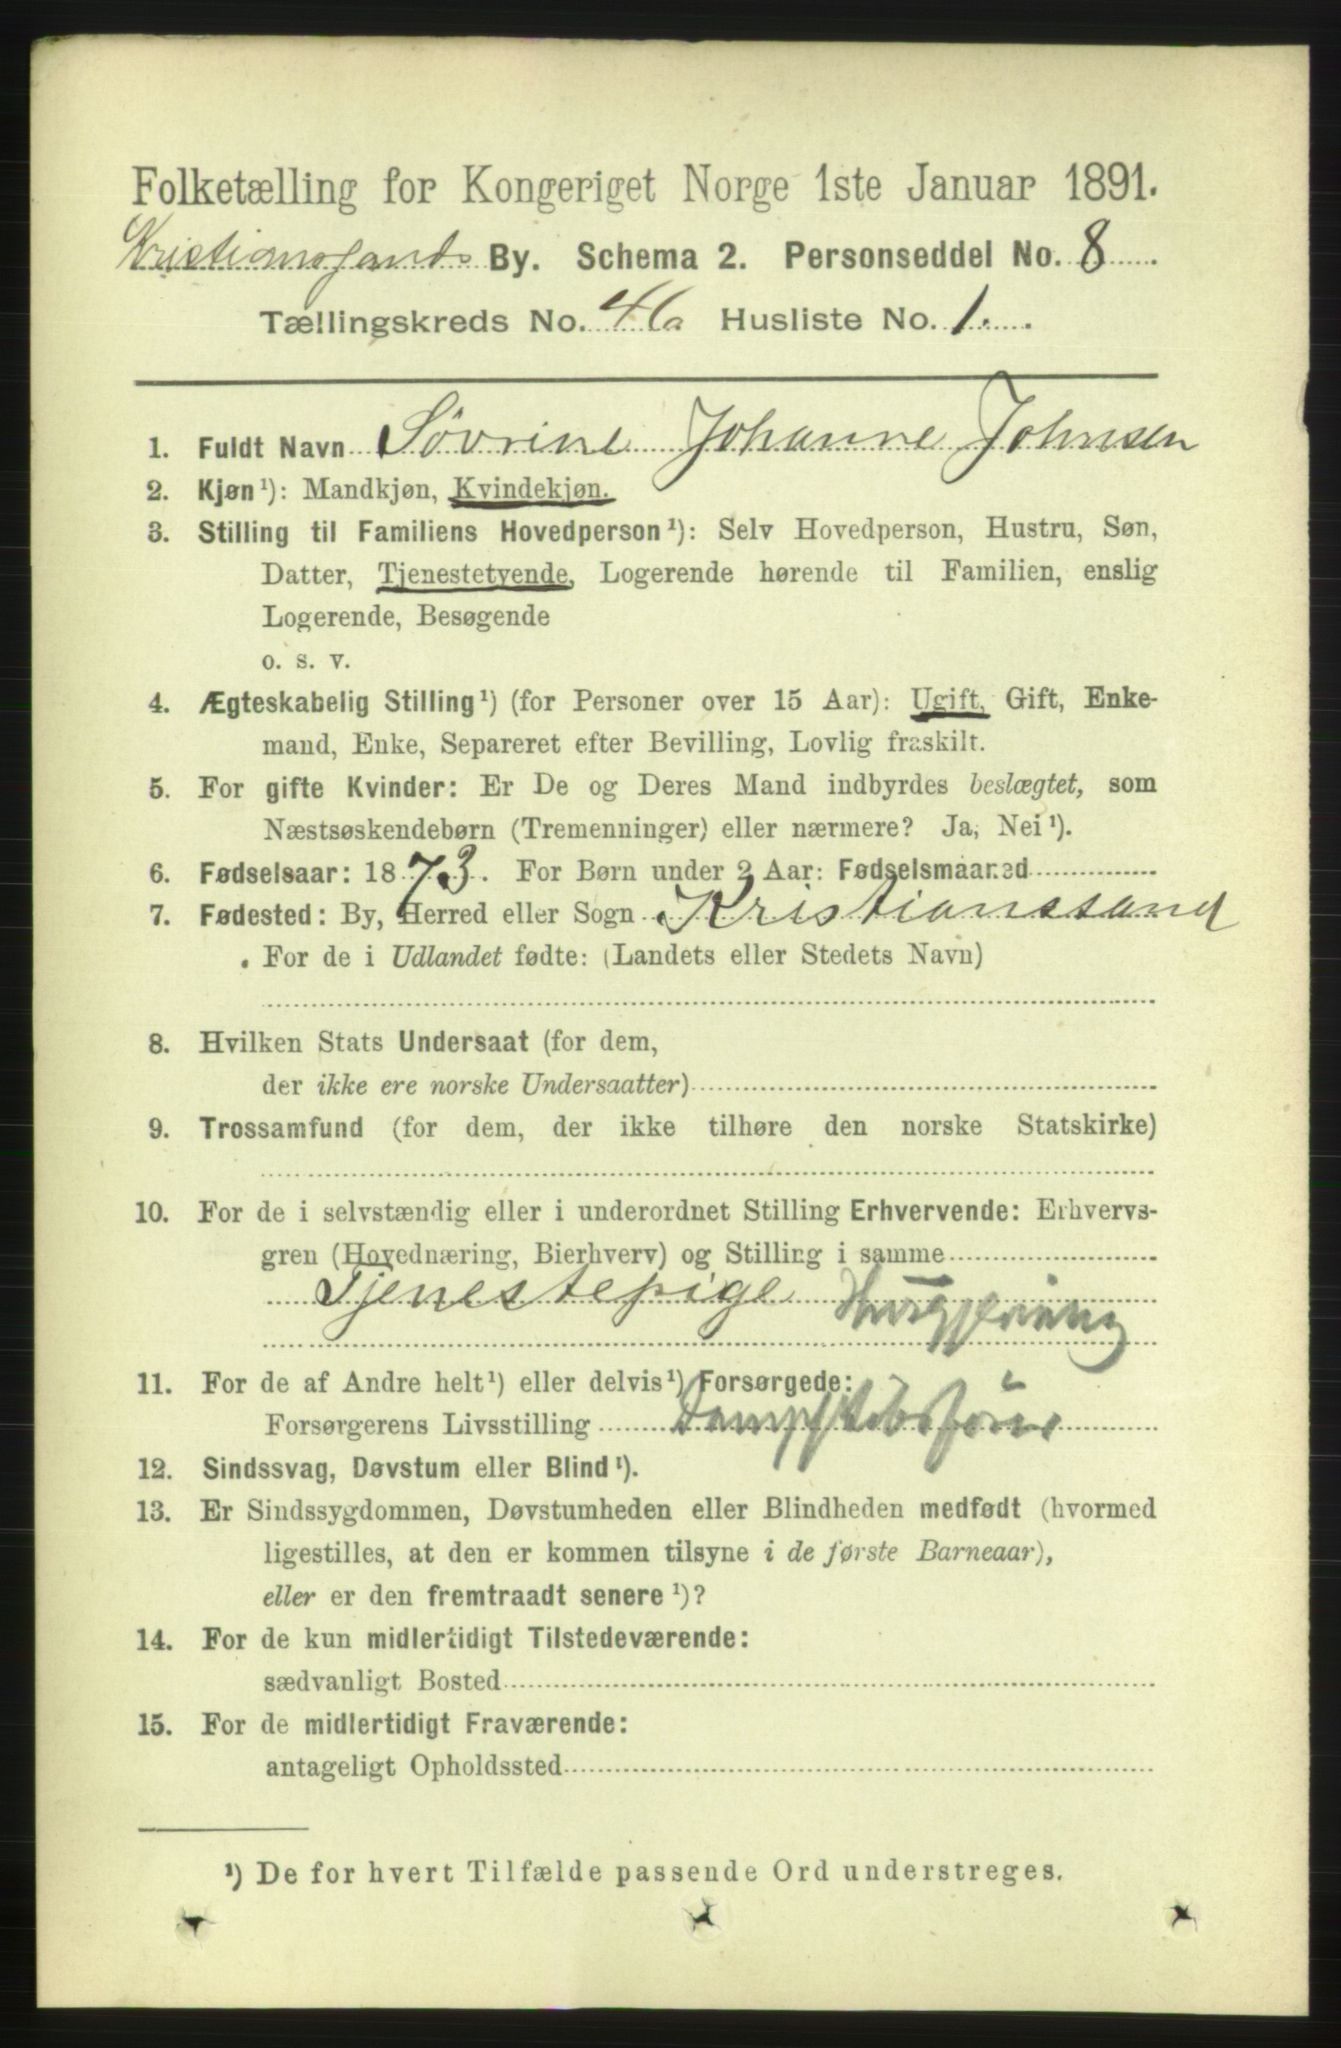 Folketælling for Kongeriget Norge 1ste Januar 1891.
Kristianssands By. Schema 2. Personseddel No. 8
Tællingskreds No. 46 Husliste No. 1.
1. Fuldt Navn Sövrine Johanne Johnsen
2. Kjøn¹): Mandkjøn, Kvindekjøn.
3. Stilling til Familiens Hovedperson¹): Selv Hovedperson, Hustru, Søn,
Datter, Tjenestetyende, Logerende hørende til Familien, enslig
Logerende, Besøgende
o. s. v.
4. Ægteskabelig Stilling¹) (for Personer over 15 Aar): Ugift, Gift, Enke-
mand, Enke, Separeret efter Bevilling, Lovlig fraskilt.
5. For gifte Kvinder: Er De og Deres Mand indbyrdes beslægtet, som
Næstsøskendebørn (Tremenninger) eller nærmere? Ja, Nei¹).
6. Fødselsaar: 1873. For Børn under 2 Aar: Fødselsmaaned
7. Fødested: By, Herred eller Sogn Kristianssand
For de i Udlandet fødte: (Landets eller Stedets Navn)
8. Hvilken Stats Undersaat (for dem,
der ikke ere norske Undersaatter)
9. Trossamfund (for dem, der ikke tilhøre den norske Statskirke)
10. For de i selvstændig eller i underordnet Stilling Erhvervende: Erhvervs-
gren (Hovednæring, Bierhverv) og Stilling i samme
Tjenestepige Husgjerning
11. For de af Andre helt¹) eller delvis¹) Forsørgede:
Forsørgerens Livsstilling
12. Sindssvag, Døvstum eller Blind¹).
13. Er Sindssygdommen, Døvstumheden eller Blindheden medfødt (hvormed
ligestilles, at den er kommen tilsyne i de første Barneaar),
eller er den fremtraadt senere¹)?
14. For de kun midlertidigt Tilstedeværende:
sædvanligt Bosted
15. For de midlertidigt Fraværende:
antageligt Opholdssted
¹) De for hvert Tilfælde passende Ord understreges.